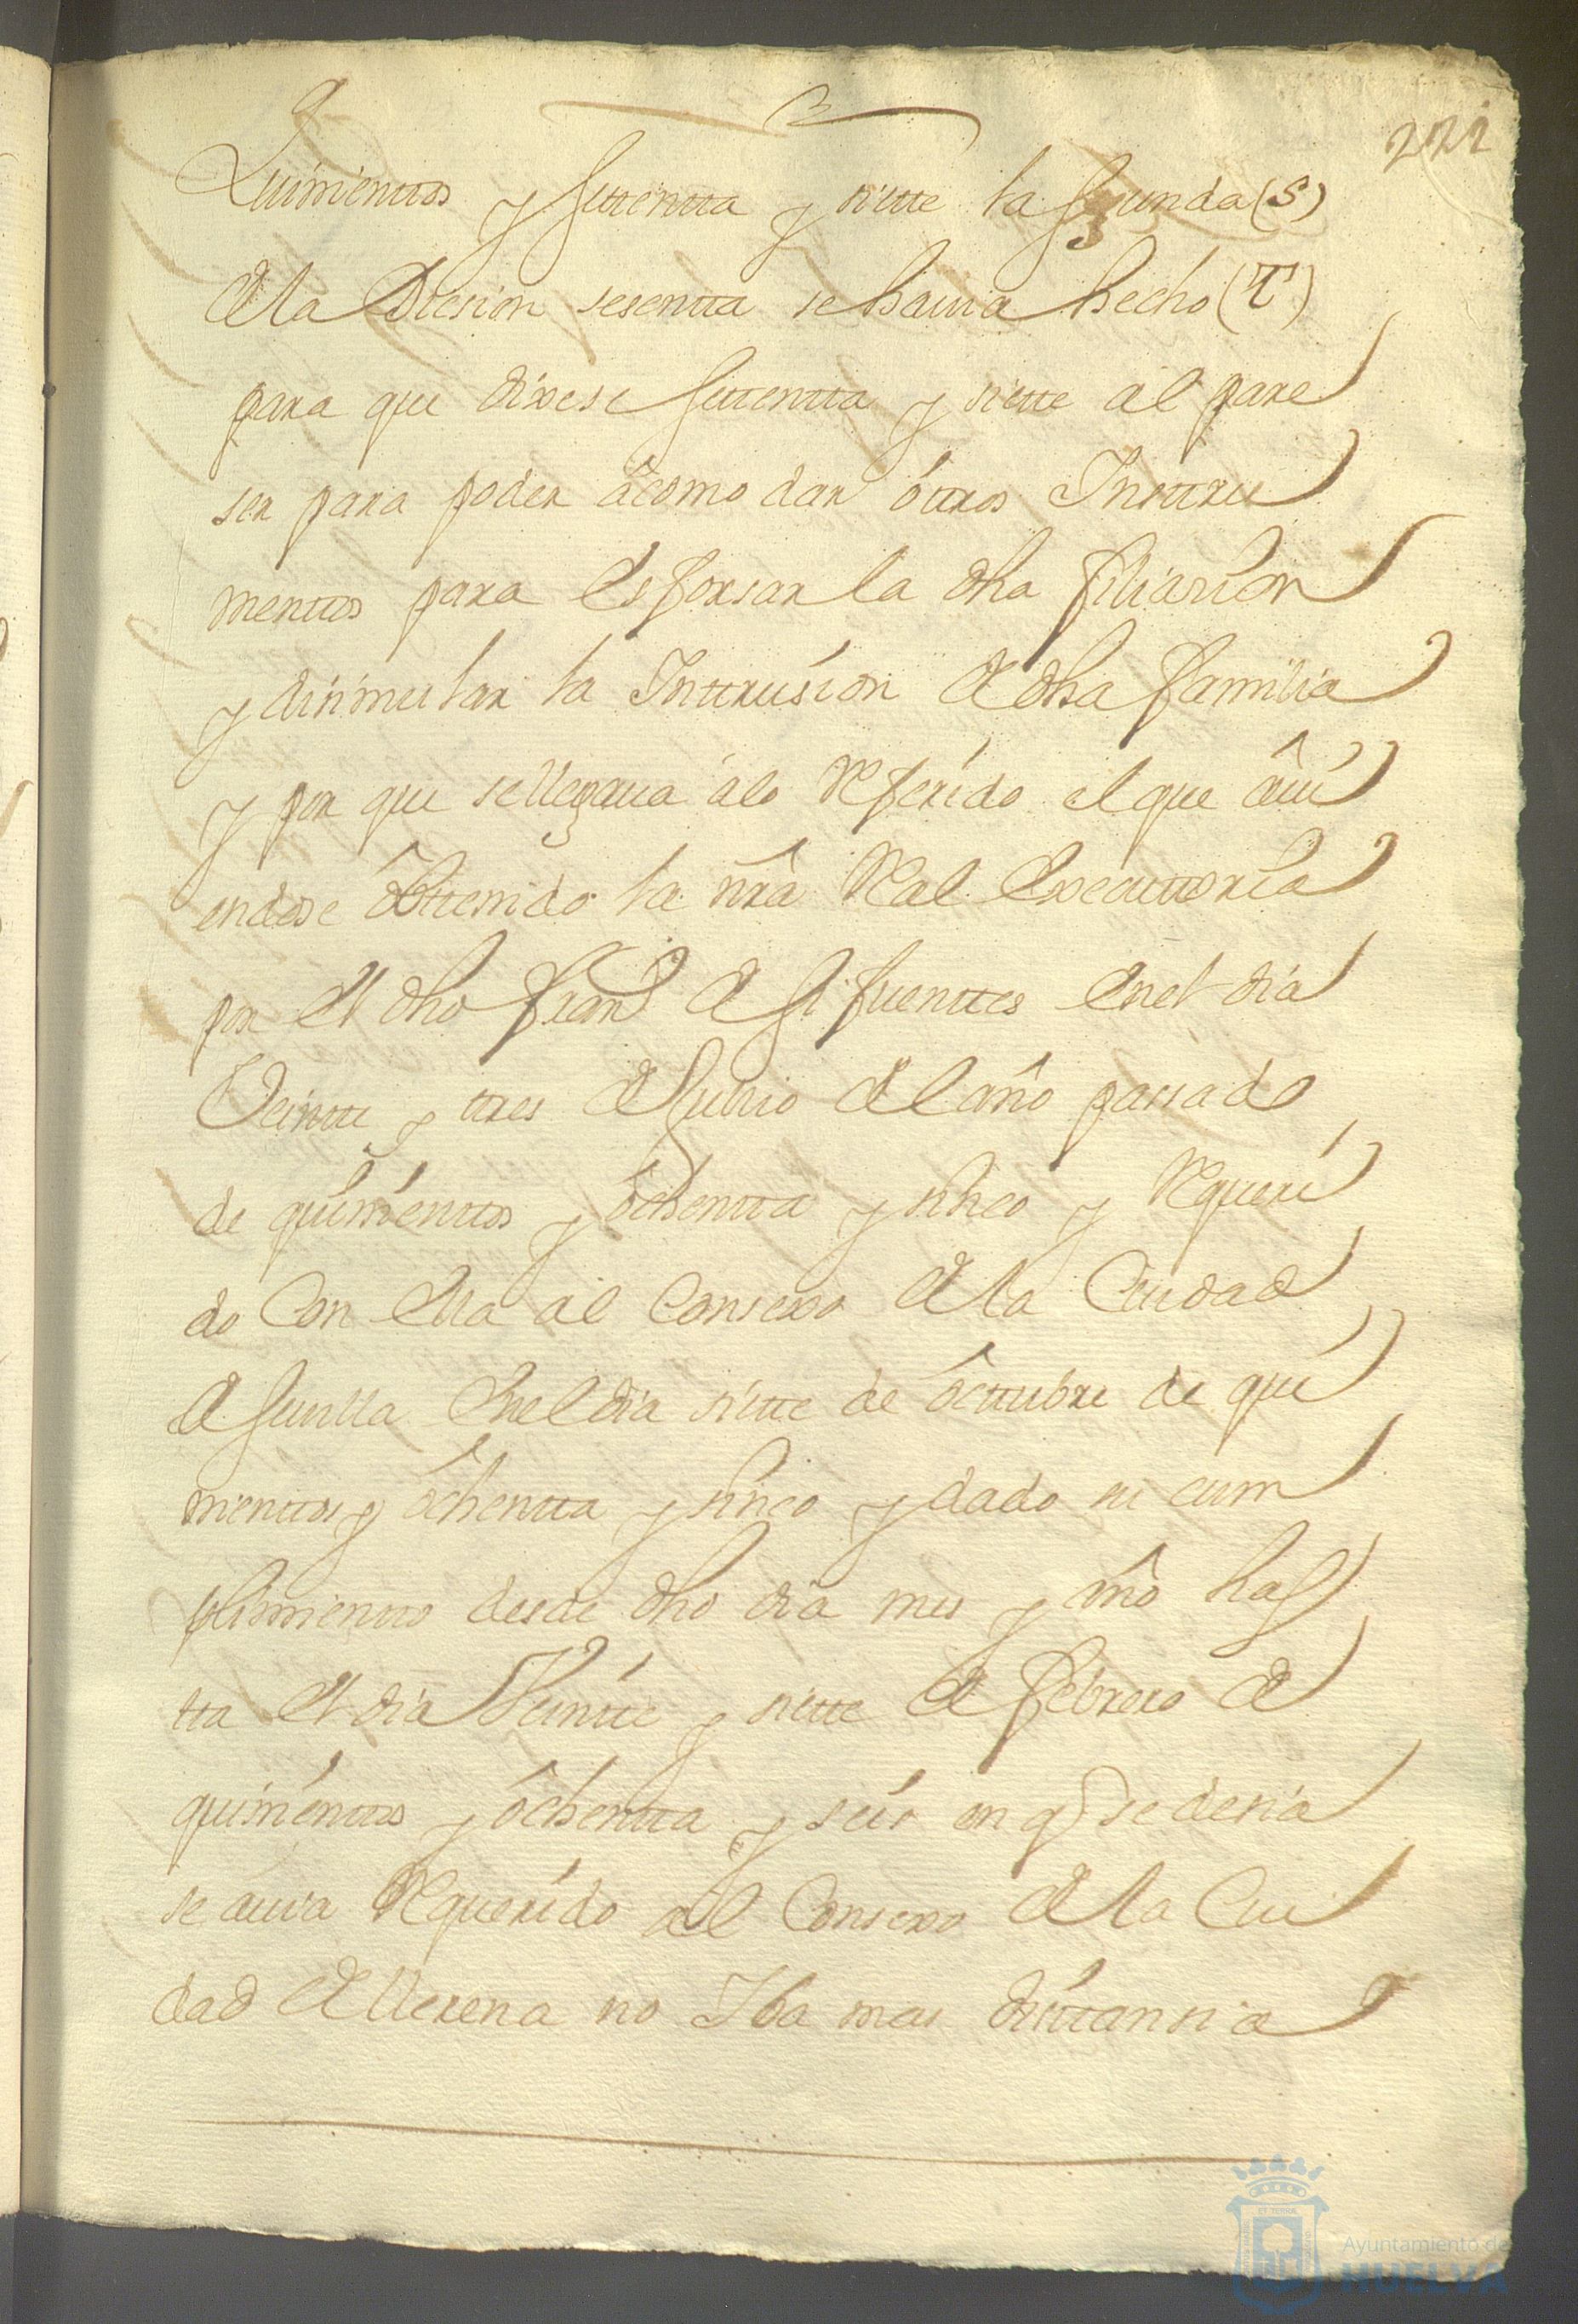 221
Quinienttos y settentta y siette la segunda (S)
de la Dicsion sesentta se hauia hecho (T)
para que dixese settentta y siette al pare
ser para poder âcomodar óttros Instru
menttos para esforsar la dha filiasion
y disimular la Inttrusion de dha familia
y por que se llegaua álo Referido el que âui
endose obttenido la nrâ Real Executtoria
por el dho Fran.co de Sifuenttes en el dia
Veintte y ttres de Junio del año passado
de quinienttos y ôchentta y sinco y Requeri
do Con ella al Consexo de la Ciudad
de Seuilla en el dia siette de ôcttubre de qui
nienttos y ôchentta y sinco y dado su cum
plimientto desde dho dia mes y año has
tta el dia Veintte y siette de febrero de
quinienttos y ôchentta y seis en q se desia
se auia Requerido al Consexo de la Ciu
dad de Llerena no Iba mas disttansia
Ayuntamiento de
HUELVA